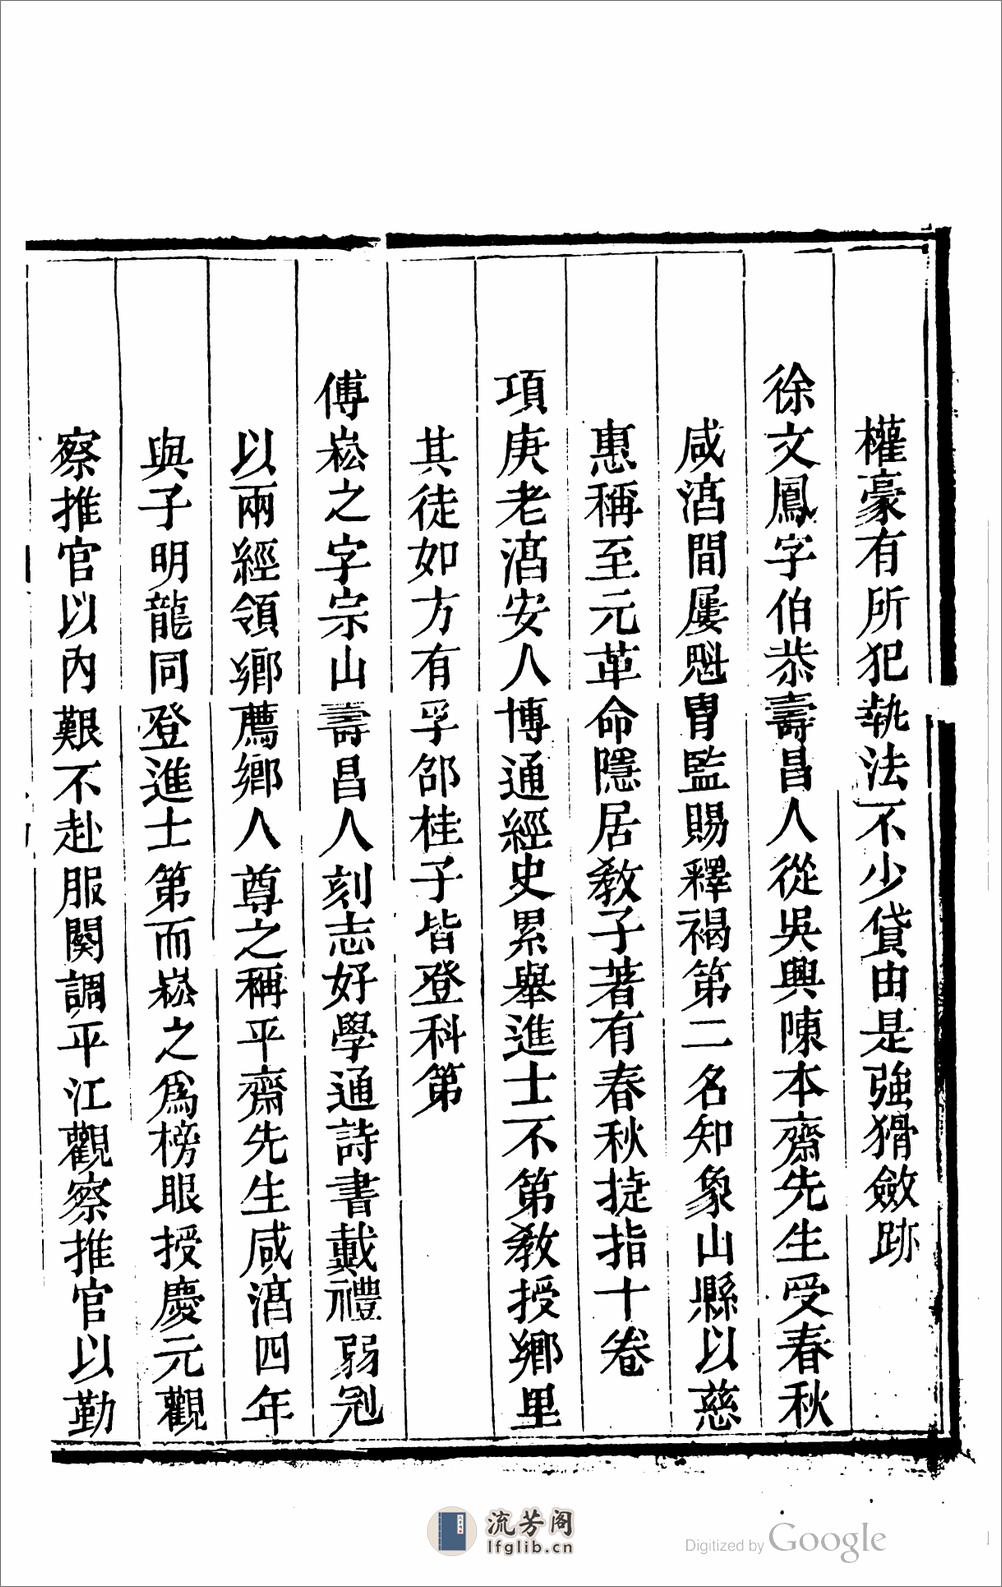 權豪有所犯執法不少貸由是強猾斂跡
徐文鳳字伯恭壽昌人從吳興陳本齋先生受春秋
咸淳間屢魁胄監賜釋褐第二名知象山縣以慈
惠稱至元革命隱居教子著有春秋捷指十卷
項庚老淳安人博通經史累舉進士不第教授鄉里
其徒如方有孚邵桂子皆登科第
傅崧之字宗山壽昌人刻志好學通詩書戴禮弱冠
以兩經領鄉薦鄉人尊之稱平齋先生咸淳四年
與子明龍同登進士第而崧之爲榜眼授慶元觀
察推官以內艱不赴服闋調平江觀察推官以勤
流芳阁
lfglib.cn
Digitized by Google